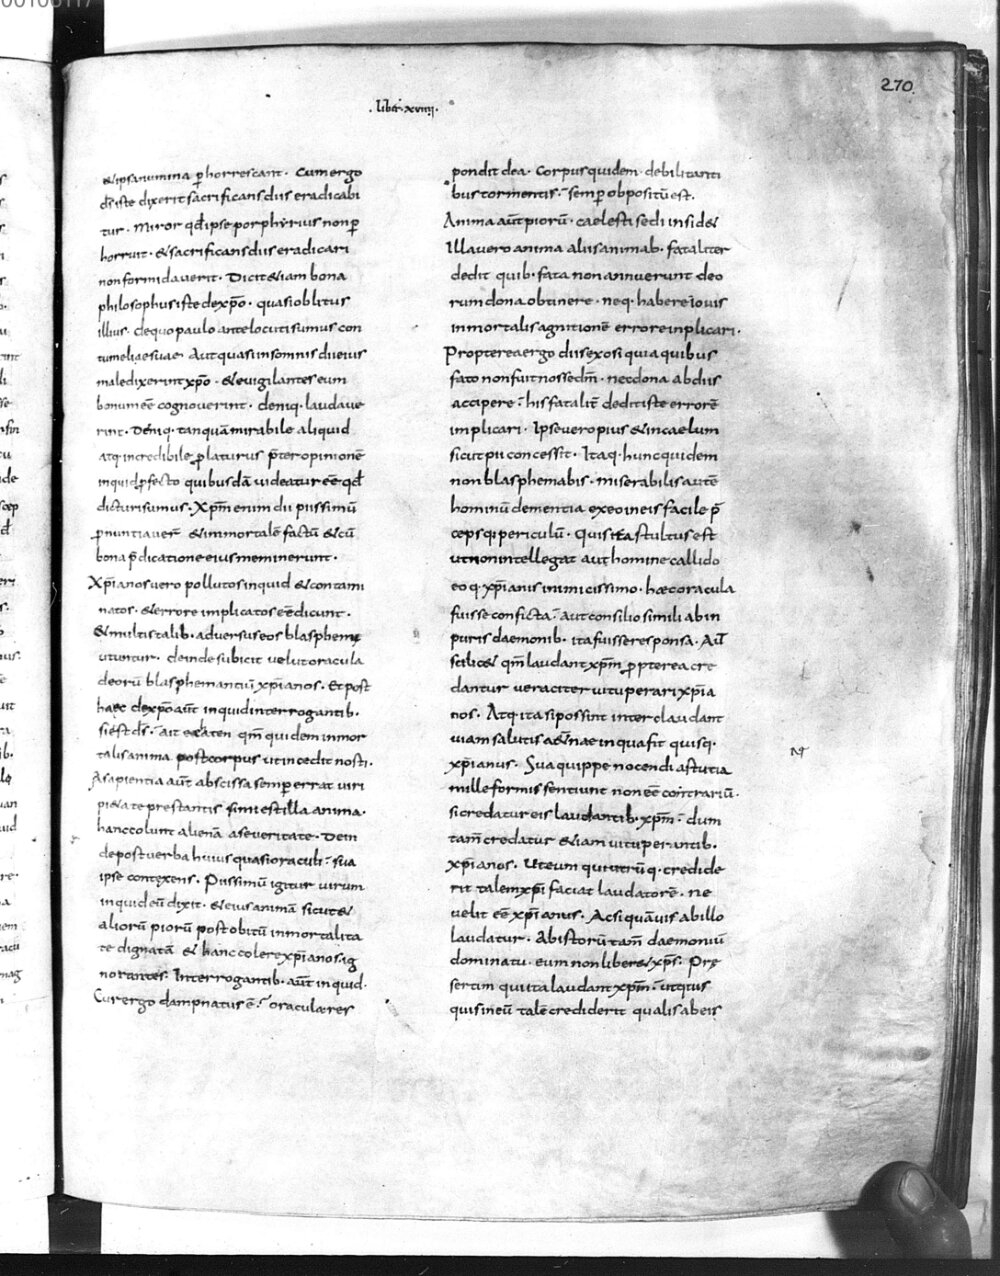 00100117
270
. liber. xviiij.
& ipsa numina ꝑhorrescant. Cum ergo
ds̄ iste dixerit sacrificans diis eradicabi
tur. Miror qđ ipse porphyrius non ꝑ
horruit. & sacrificans diis eradicari
non formidaverit. Dicit &iam bona
philosophus iste de xp̄o. quasi oblitus
illius. de quo paulo ante locuti sumus con
tumeliae suae. Aut quasi in somnis dii eius
maledixerint xp̄o. & evigilantes eum
bonum eē cognoverint. deniq. laudave
rint. Deniq. tanquā mirabile aliquid
atq. incredibile ꝓlaturus p̄ter opinionē
inquid ꝓfecto quibusdā videatur eē qđ
dicturi sumus. Xp̄m enim dii piissimū
ꝓnuntiaver̄ & inmortalē factū & cū
bona p̄dicatione eius meminerunt.
Xp̄ianos vero pollutos inquid & contami
natos. & errore implicatos eē dicunt.
& multis talib. adversus eos blasphemiis
utuntur. deinde subicit velut oracula
deorū blasphemantiū xp̄ianos. Et post
haec de xp̄o aūt inquid interrogantib.
si est ds̄. ait ecaten qm̄ quidem inmor
talis anima post corpus ut incedit nosti.
A sapientia aūt abscissa semper errat viri
pi&ate prestantis simi est illa anima.
hanc colunt alienā a severitate. Dein
de post verba huius quasi oraculi: sua
ipse contexens. Piissimū igitur virum
inquid eū dixit. & eius animā sicut &
aliorū piorū post obitū inmortalita
te dignatā & hanc colere xp̄ianos ig
norantes. Interrogantib. aūt inquid.
Cur ergo dampnatus ē: oraculares
pondit dea. Corpus quidem debilitanti
bus tormentis: semp̄ oppositū est.
Anima aūt piorū. caelesti sedi insid&
Illa vero anima aliis animab. fataliter
dedit quib. fata non annuerunt deo
rum dona obtinere. neq. habere iovis
inmortalis agnitionē errore inplicari.
Propterea ergo diis exosi quia quibus
fato non fuit nosse dm̄. nec dona ab diis
accipere: his fatalit̄ dedit iste errorē
implicari. Ipse vero pius & in caelum
sicut pii concessit. Itaq. hunc quidem
non blasphemabis. miserabilis autē
hominū dementia ex eo in eis facile p̄
cepsq. periculū. Quis ita stultus est
ut non intellegat aut homine callido
eoq. xp̄ianis inimicissimo. haec oracula
fuisse conficta: aut consilio simili ab in
puris daemonib. ita fuisse responsa. Aū
scilic& qm̄ laudant xp̄m ꝓpterea cre
dantur veraciter vituperari xp̄ia
nos. Atq. ita si possint intercludant
viam salutis aet̄nae in qua fit quisq.
xp̄ianus. Sua quippe nocendi astutia
milleformi sentiunt non eē contrariū.
si credatur eis laudantib. xp̄m: dum
tam̄ credatur &iam vituperantib.
xp̄ianos. Ut eum qui utrūq. credide
rit talem xp̄i faciat laudatorē. ne
velit eē xp̄ianus. Ac si quāvis ab illo
laudatur. Ab istorū tam̄ daemoniū
dominatu. eum non liber& xp̄s. Prę
sertim qui ita laudant xp̄m: ut q̇s
quis in eū talē crediderit qualis ab eis